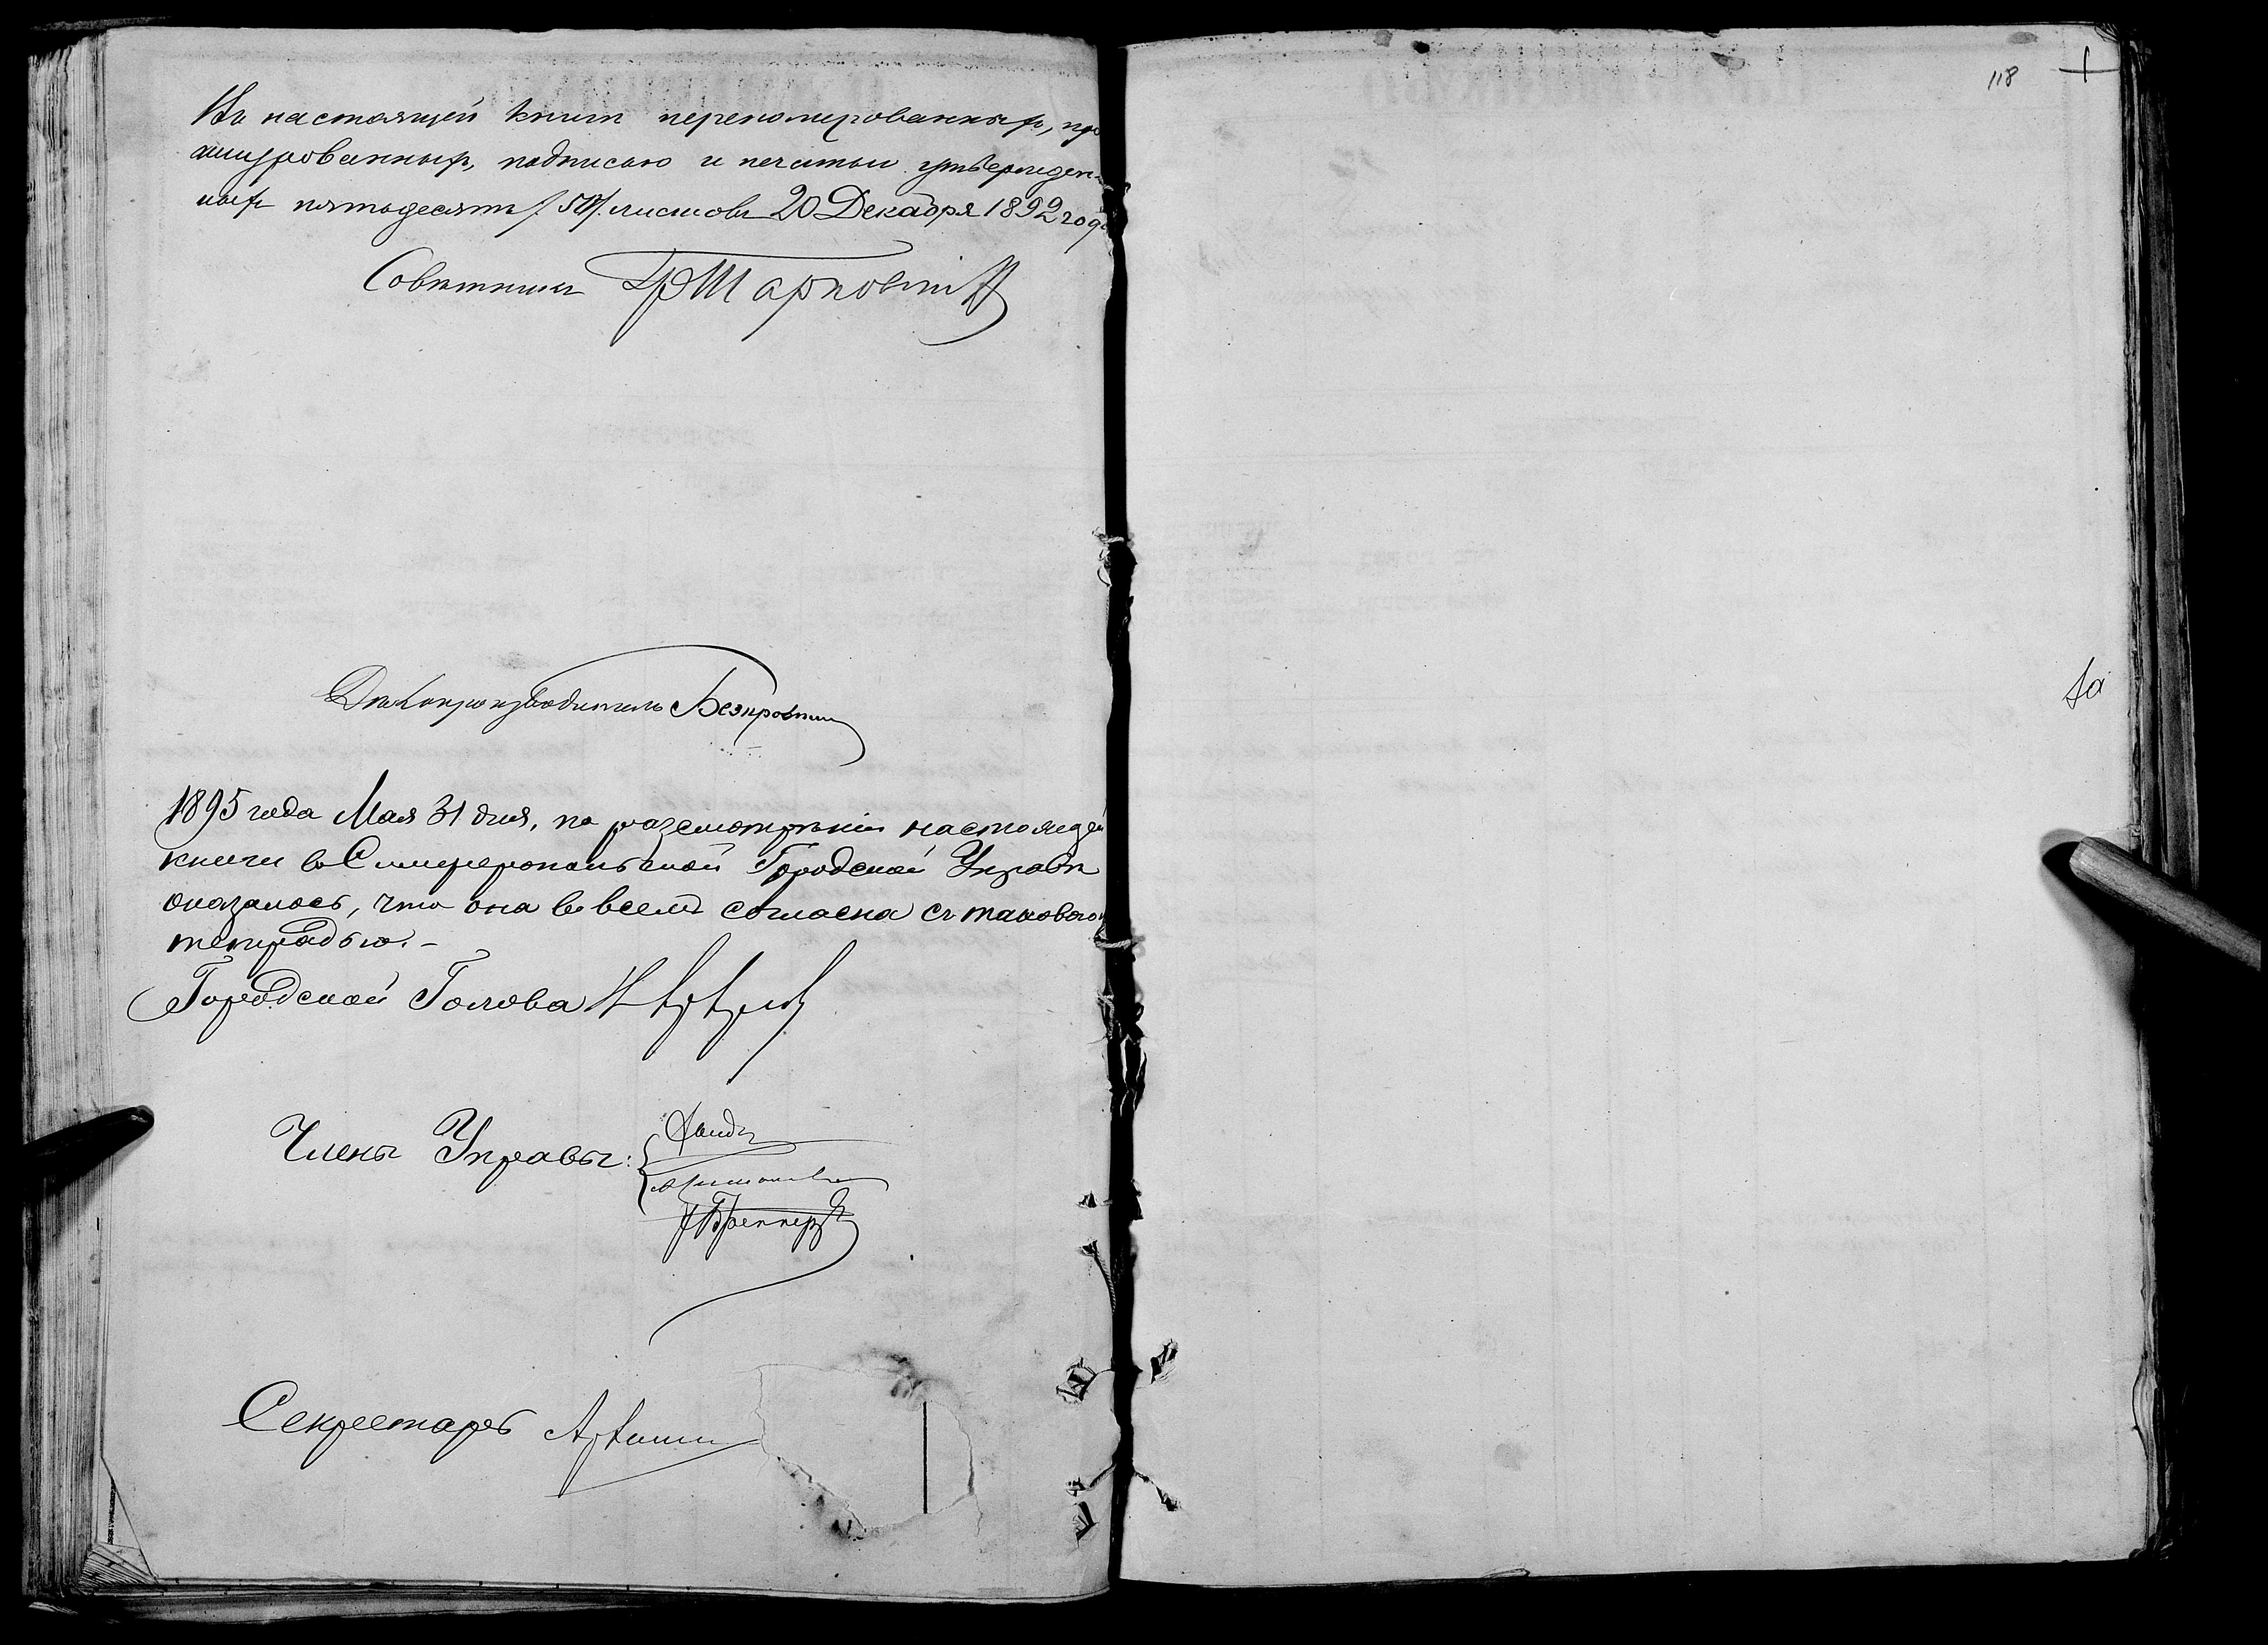 Въ настоящей книгѣ перенумерованныхъ, про
шнурованныхъ, подписью и печатью утвержден-
ныхъ пятьдесятъ /50/ листовъ 20 Декабря 1892 года
Совѣтникъ Тарковскій
Дѣлопроизводитель Безкровный
1895 года Мая 31 дня, по разсмотрѣніи настоящей
книги въ Симферопольской Городской Управѣ
оказалось, что она во всемъ согласна съ таковою
тетрадью.-
Городской Голова
Члены Управы:
Секретарь
118